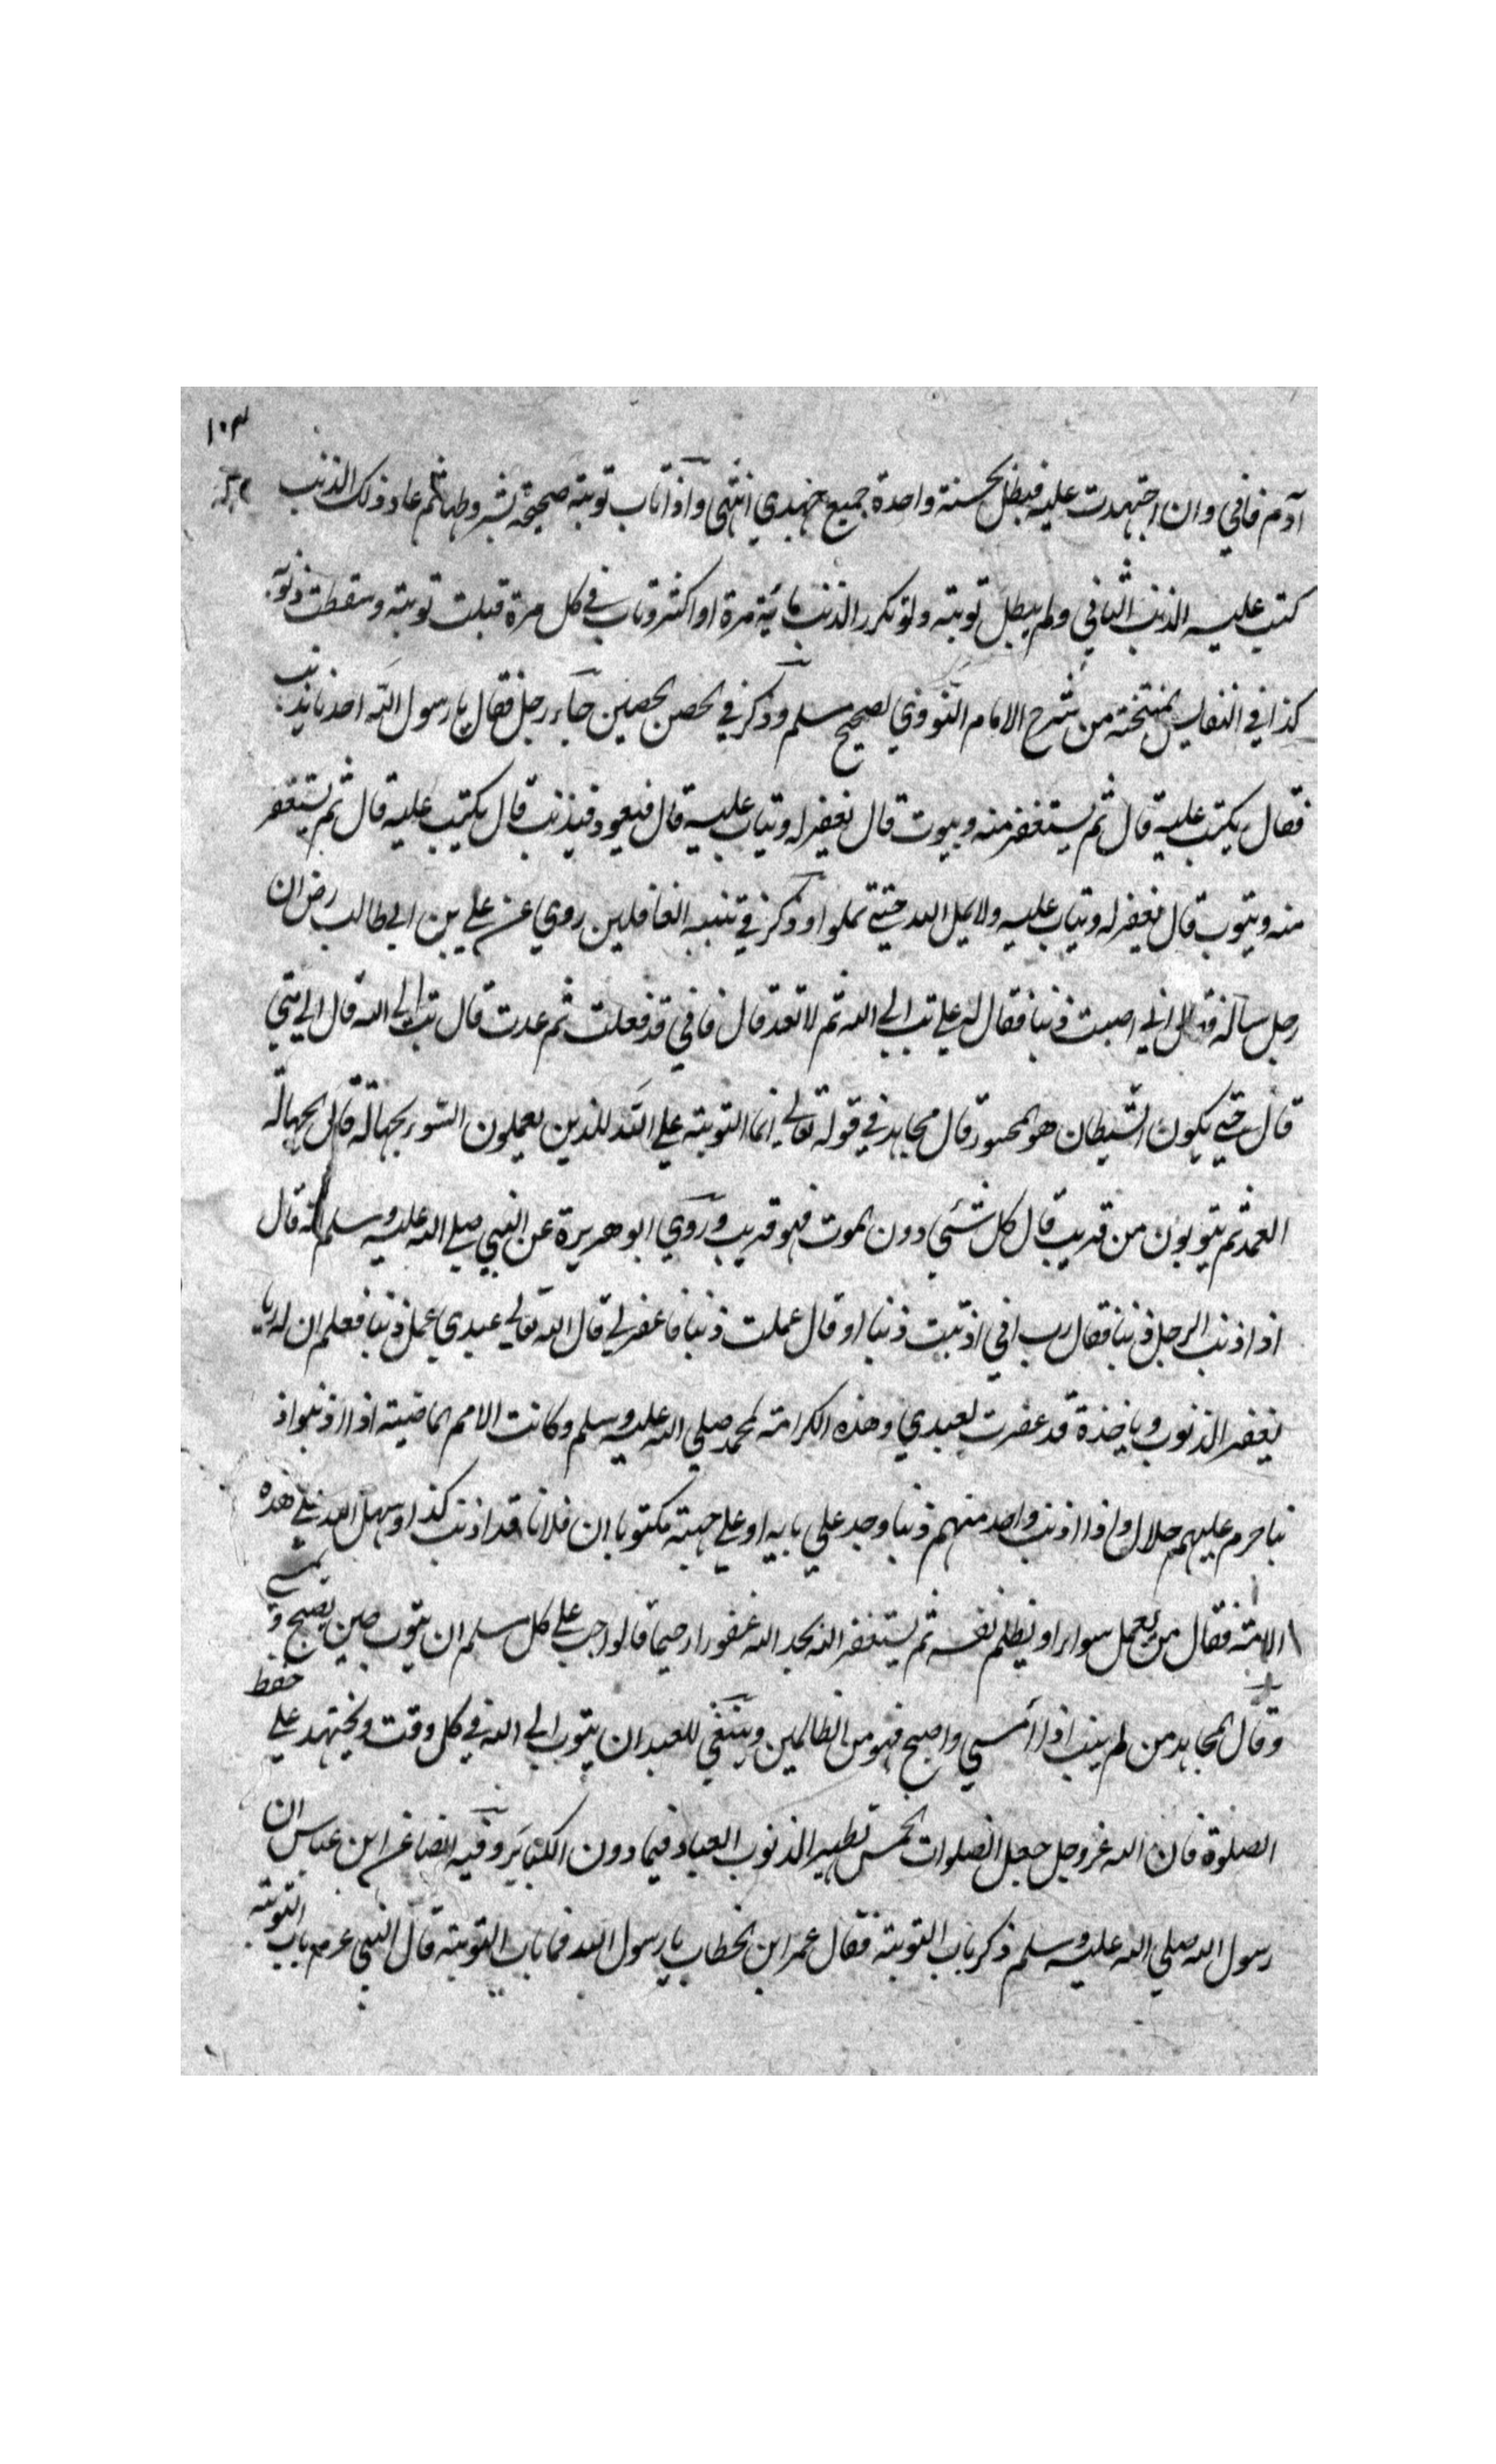 ١٠٣
آدم فاني وان اجتهدت عليه فيبطل بحسنة واحدة جميع جهدي انتهى واذا تاب توبة صحيحة بشروطها ثم عاد ذلك الذنب
كتب عليه الذنب الثاني ولم يبطل توبته ولو تكرر الذنب مائة مرة او اكثر وتاب في كل مرة قبلت توبته وسقطت ذنوبه
كذا في النفايس منتخبة من شرح الامام النووي لصحيح مسلم وذكر في الحصن الحصين جاء رجل فقال يا رسول الله احدنا يذنب
فقال يكتب عليه قال ثم يستغفر منه ويتوب قال يغفر له ويتاب عليه قال فيعود فيذنب قال يكتب عليه قال ثم يستغفر
منه ويتوب قال يغفر له ويتاب عليه ولا يمل الله حتى تملوا وذكر في تنبيه الغافلين روي عن علي بن ابي طالب رض ان
رجل سأله فقال اني اصبت ذنبا فقال له علي تب الى الله ثم لا تعد قال فاني قد فعلت ثم عدت قال تب الى الله قال الى متى
قال حتى يكون الشيطان هو المحسور قال مجاهد في قوله تعالى انما التوبة على الله للذين يعملون السوء بجهالة قال الجهالة
العمد ثم يتوبون من قريب قال كل شئي دون الموت فهو قريب وروي ابو هريرة عن النبي صلى الله عليه وسلم انه قال
اذا اذنب الرجل ذنبا فقال رب اني اذنبت ذنبا او قال عملت ذنبا فاغفر لي قال الله تعالى عبدي عمل ذنبا فعلم ان له ربا
يغفر الذنوب وياخذه قد غفرت لعبدي وهذه الكرامة لمحمد صلى الله عليه وسلم وكانت الامم الماضية اذا اذنبوا ذ
نبا حرم عليهم حلال واذا اذنب واحد منهم ذنبا وجد على بابه او على جبهته مكتوبا ان فلانا قد اذنب كذا وسهل الله على هذه
الامة فقال من يعمل سوءا او يظلم نفسه ثم يستغفر الله يجد الله غفورا رحيما قالوا جب على كل مسلم ان يتوب حين يصبح و يمسي
وقال المجاهد من لم يتب اذا امسى واصبح فهو من الظالمين وينبغي للعبد ان يتوب الى الله في كل وقت ويجتهد على حفظ
الصلوة فان الله عز وجل جعل الصلوات الخمس تطهيرا لذنوب العباد فيما دون الكبائر وفيه ايضا عن ابن عباس ان
رسول الله صلى الله عليه وسلم ذكر باب التوبة فقال عمر ابن الخطاب يا رسول الله فما باب التوبة قال النبي عم باب التوبة